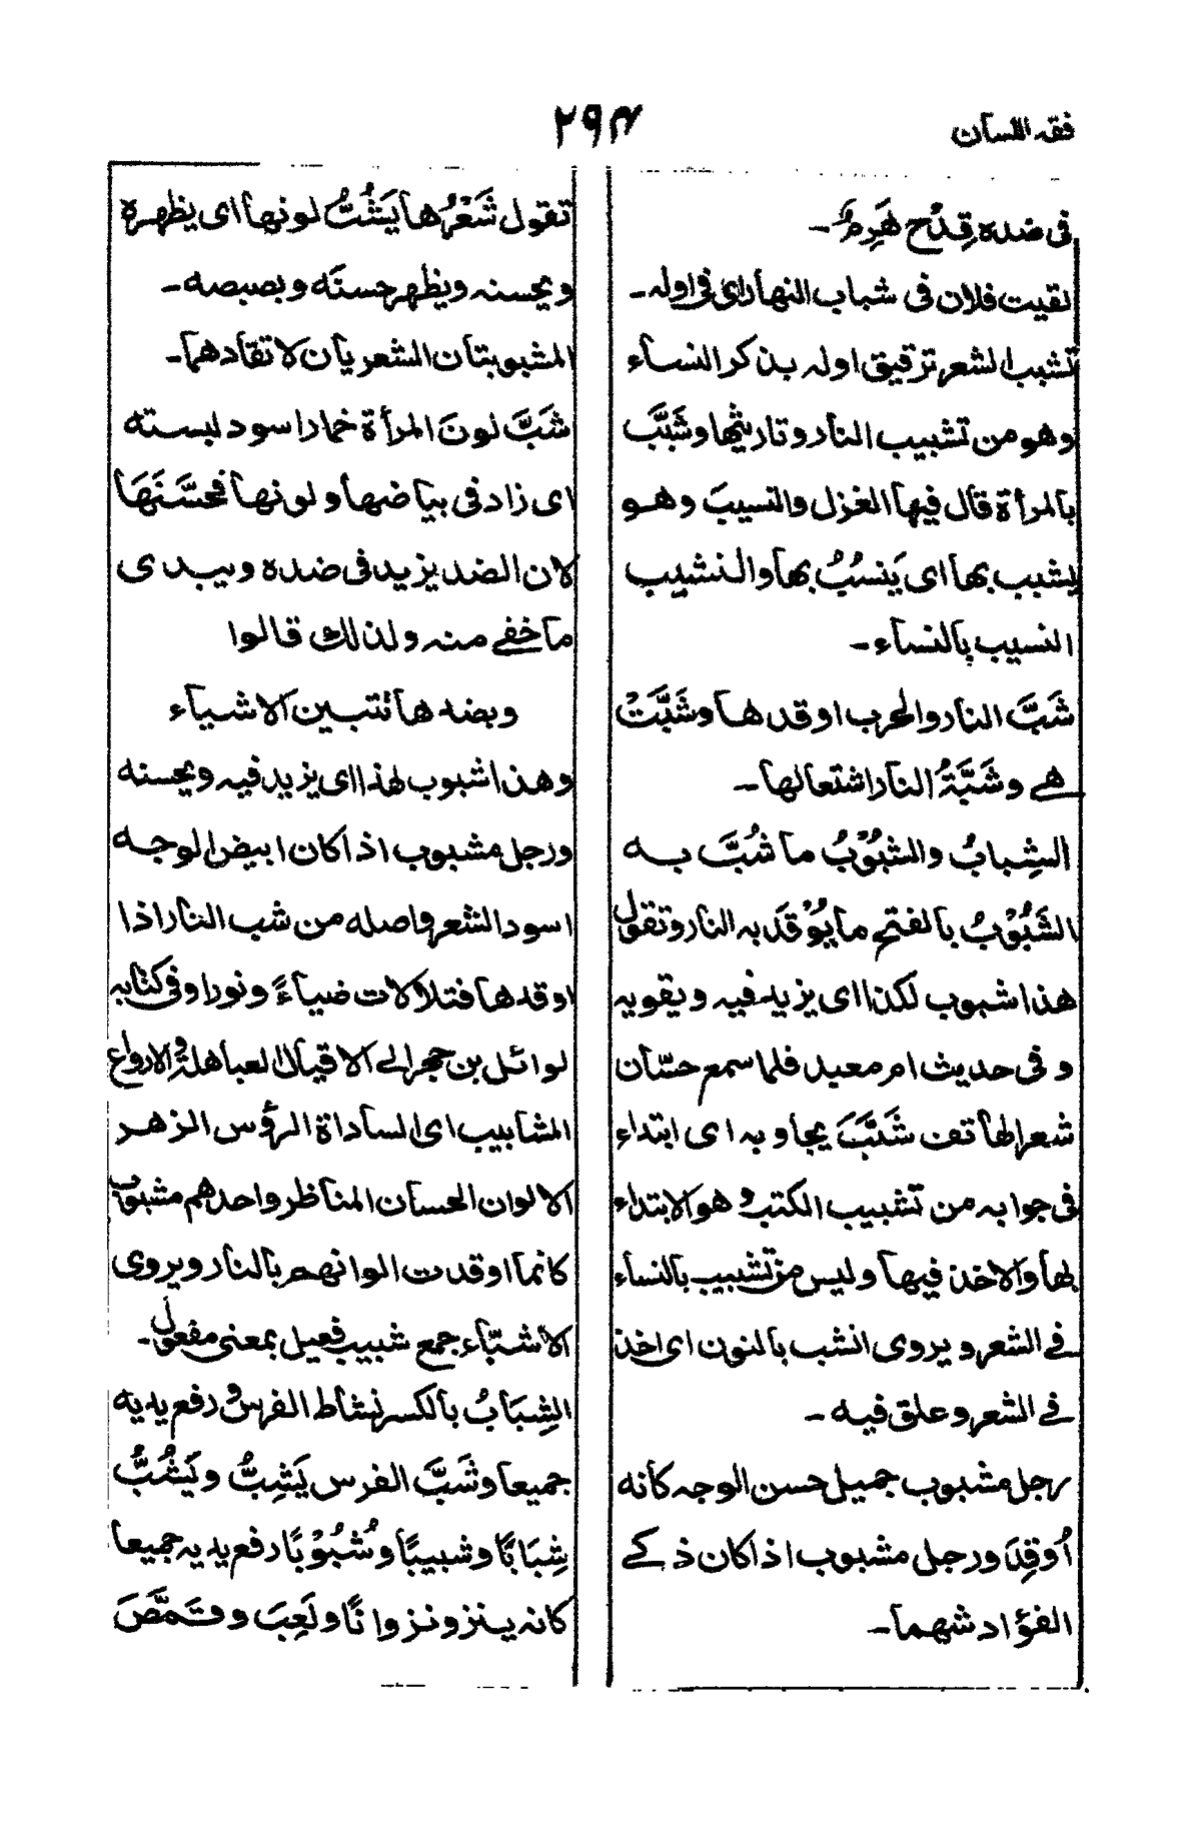 فقه اللسان
٢٩٤
فى ضده قِدْح هَرِمٌ۔
لقيت فلان فى شباب النهار اى فى اوله۔
تشبب الشعر ترقيق اوله بذكر النساء
وهو من تشبيب النار وتاريثها وشَبَّبَ
بالمرأة قال فيها الغزل والنسيبَ وهو
يشبب بها اى يَنسُبُ بها والنشبيب
النسيب بالنساء۔
شَبَّ النار والحرب اوقدها وشَبَّتْ
هے وشَبَّةُ النار اشتعالها۔
الشِبابُ والشبُوْبُ ما شُبَّ به
الشَبُوْبُ بالفتح ما يُوْقَد به النار وتقول
هذا شبوب لكذا اى يزيد فيه ويقويه
وفى حديث ام معبد فلما سمع حسّان
شعر الهاتف شَبَّبَ يجاوبه اى ابتداء
فى جوابه من تشبيب الكتب وهو الابتداء
لها والاخذ فيها وليس من تشبيب بالنساء
فے الشعر ويروى انشب بالنون اى اخذ
فے الشعر وعلق فيه۔
رجل مشبوب جميل حسن الوجه كأنه
اُوقِدَ ورجل مشبوب اذا كان ذكے
الفؤاد شهما۔
تقول شَعْرُها يَشُبُّ لونها اى يظهره
ويحسنه ويظهر حسنَه وبصبصه۔
المشبوبتان الشعريان لاتقادهما۔
شَبَّ لونَ المرأة خمار اسود لبسته
اى زاد فى بياضها ولونها فحسَّنَهَا
لان الضد يزيد فى ضده ويبدى
ما خفے منه ولذلك قالوا
وبضدها تتبين الاشياء
وهذا شبوب لهذا اى يزيد فيه ويحسنه
ورجل مشبوب اذا كان ابيض الوجه
اسود الشعر واصله من شب النار اذا
اوقدها فتلالات ضياءً ونورا وفى كتابه
لوائل بن حجر الے الاقيال العباهلة والارواع
المشابيب اى الساداة الرؤس الزهر
الالوان الحسان المناظر واحدهم مشبوب
كانما اوقدت الوانهم بالنار ويروى
الاشبّاء جمع شبيب فعيل بمعنى مفعول۔
الشِبَابُ بالكسر نشاط الفرس ورفع يديه
جميعا وشَبَّ الفرس يَشِبُّ ويَشُبُّ
شِبَابًا وشبيبًا وشُبُوْبًا رفع يديه جميعا
كانه ينزو نزوانًا ولَعِبَ وقمَّصَ